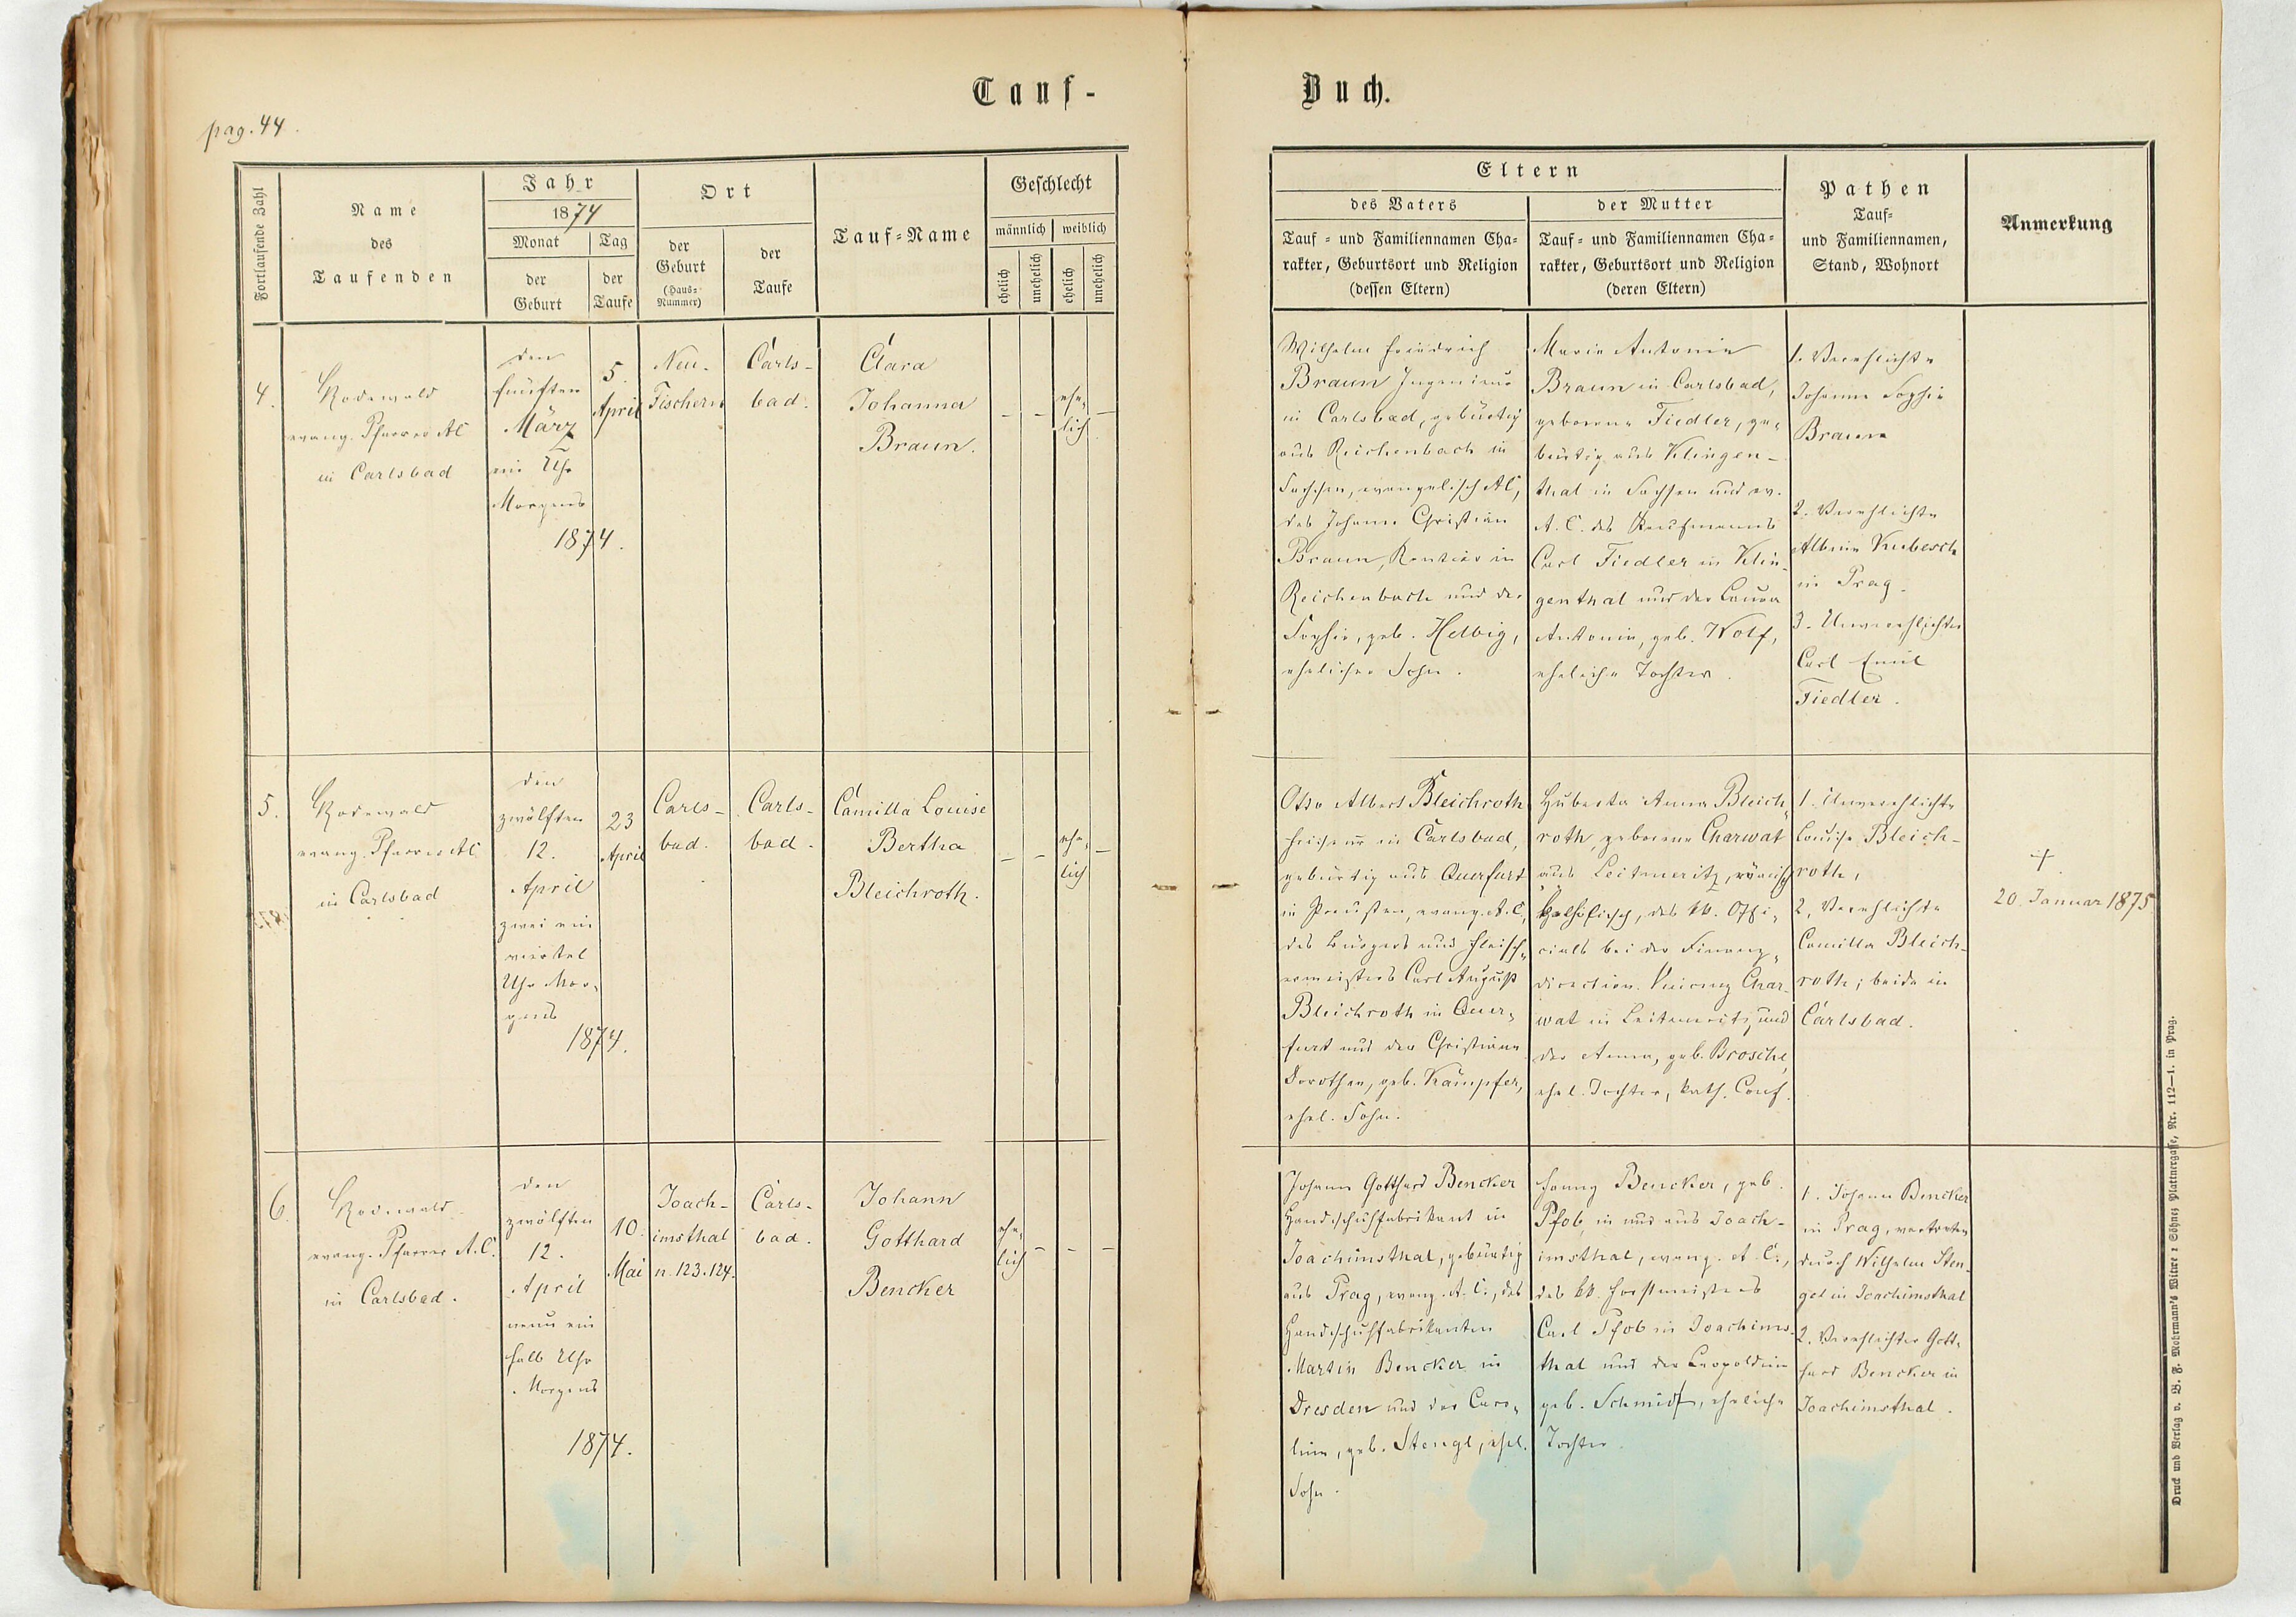 Tauf-
Buch.
pag. 44.
Fortlaufende Zahl
Name
des
Taufenden
Jahr
1874
Monat
der
Geburt
Tag
der
Taufe
Ort
der
Geburt
(Haus-
Nummer)
der
Taufe
Tauf-Name
Geschlecht
männlich
weiblich
ehelich
unehelich
ehelich
unehelich
Eltern
des Vaters
Tauf- und Familiennamen Cha-
rakter, Geburtsort und Religion
(dessen Eltern)
der Mutter
Tauf- und Familiennamen Cha-
rakter, Geburtsort und Religion
(deren Eltern)
Pathen
Tauf-
und Familiennamen,
Stand, Wohnort
Anmerkung
4.
Rodewald
evang. Pfarrer AC
in Carlsbad
den
fünften
März
ein Uhr
Morgens
1874.
5.
April
Neu-
Fischern
Carls-
bad.
Clara
Johanna
Braun.
–
–
ehe-
lich
–
Wilhelm Friedrich
Braun Ingenieur
in Carlsbad, gebürtig
aus Reichenbach in
Sachsen, evangelisch AC,
des Johann Christian
Braun, Rentier in
Reichenbach und der
Sophie, geb. Helbig,
ehelicher Sohn.
Marie Antonie
Braun in Carlsbad,
geborene Fiedler, ge-
bürtig aus Klingen-
thal in Sachsen und ev.
A. C. des Kaufmanns
Carl Fiedler in Klin-
genthal und der Laura
Antonie, geb. Wolf,
eheliche Tochter.
1. Verehlichte
Johanne Sophie
Braun
2. Verehlichte
Albine Kubesch
in Prag.
3. Unverehlichter
Carl Emil
Fiedler.
5.
Rodewald
evang. Pfarrer AC
in Carlsbad
den
zwölften
12.
April
zwei ein
viertel
Uhr Mor-
gens
1874.
23
April
Carls-
bad.
Carls-
bad.
Camilla Louise
Bertha
Bleichroth.
–
–
ehe-
lich
–
Otto Albert Bleichroth
Friseur in Carlsbad,
gebürtig aus Querfurt
in Preußen, evang. A. C,
des Bürgers und Fleisch-
ermeisters Carl August
Bleichroth in Quer-
furt und der Christiane
Dorothea, geb. Kämpfer,
ehel. Sohn.
Huberta Anna Bleich-
roth, geborene Charwat
aus Leitmeritz, römisch
katholisch, des kk. Offi-
cials bei der Finanz-
direction Vincenz Char-
wat in Leitmeritz, und
der Anna, geb. Brosche,
ehel. Tochter, kath. Conf.
1. Unverehlichte
Louise Bleich-
roth,
2. Verehlichte
Camilla Bleich-
roth; beide in
Carlsbad.
†
20. Januar 1875
6.
Rodewald
evang. Pfarrer A. C.
in Carlsbad.
den
zwölften
12.
April
neun ein
halb Uhr
Morgens
1874.
10.
Mai
Joach-
imsthal
n. 123. 124.
Carls-
bad.
Johann
Gotthard
Bencker
ehe-
lich
–
–
–
Johann Gotthard Bencker
Handschuhfabrikant in
Joachimsthal, gebürtig
aus Prag, evang. A. C., des
Handschuhfabrikanten
Martin Bencker in
Dresden und der Caro-
line, geb. Stengl, ehel.
Sohn.
Fanny Bencker, geb.
Pfob, in und aus Joach-
imsthal, evang. A. C.,
des kk. Forstmeisters
Carl Pfob in Joachims-
thal und der Leopoldine
geb. Schmidt, eheliche
Tochter.
1. Johann Bencker
in Prag, vertreten
durch Wilhelm Sten-
gel in Joachimsthal
2. Verehlichter Gott-
hard Bencker in
Joachimsthal.
Druck und Verlag v. B. F. Mohrmann's Witwe & Söhne, Plattnergasse, Nr. 112—1. in Prag.